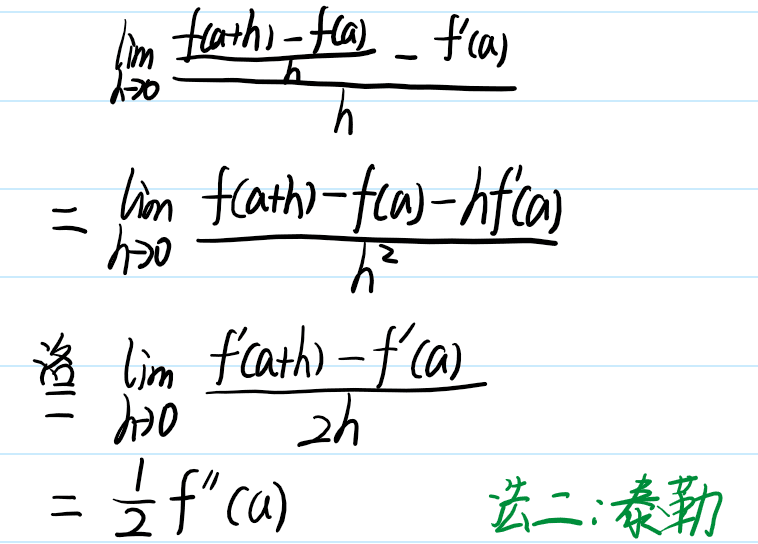 lim_{h→0} \frac{\frac{f(a+h)-f(a)}{h} - f'(a)}{h}
= lim_{h→0} \frac{f(a+h)-f(a)-hf'(a)}{h^2}
洛= lim_{h→0} \frac{f'(a+h)-f'(a)}{2h}
= \frac{1}{2} f''(a) 法二:泰勒